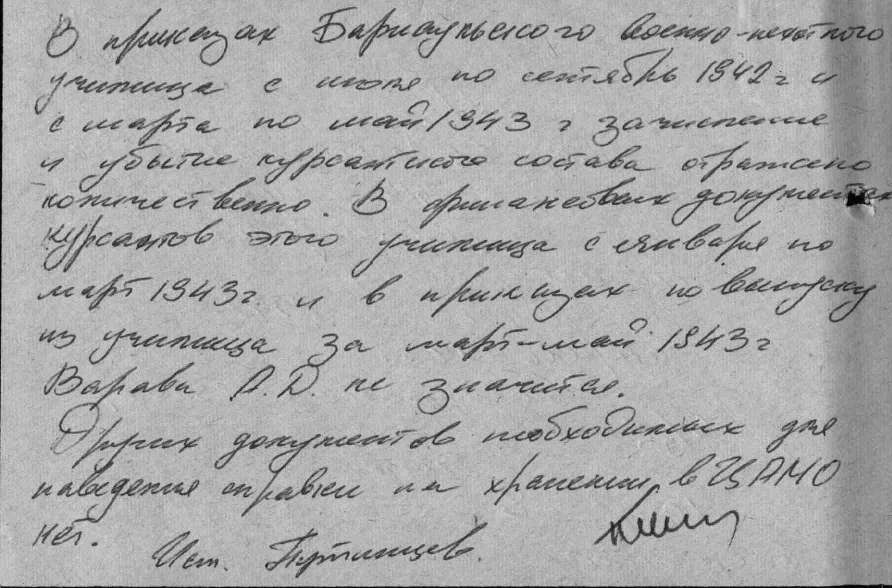 В приказах Барнаульского военно-пехотного
училища с июля по сентябрь 1942 г и
с марта по май 1943 г зачисление
и убытие курсантского состава отражено
количественно. В финансовых документах
курсантов этого училища с января по
март 1943 г. и в приказах по выпуску
из училища за март-май 1943 г
Варава А.Д. не значится.
Других документов необходимых для
наведения справки на хранении в ЦАМО
нет.
Исп.